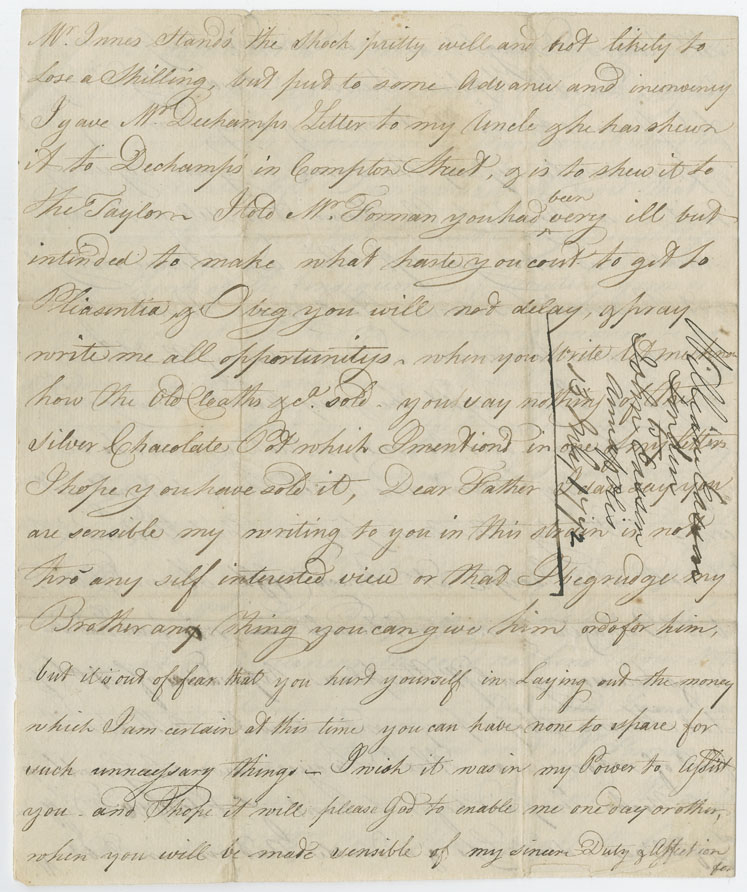 Mr. Innes Stands the Shock pritty well and not likely to
Lose a Shilling, but put to some Advance and
I gave Mr. Dechamps Letter to my Uncle & he has shewn
it to Dechamp's in Compton Street, & is to shew it to
the Taylor I told Mr. Forman you had been very ill but
intended to make what haste you cou'd to get to
& I beg you will not delay, & pray
write me all opportunitys, when you Write let me know
how the Old Cloaths &c. sold. you say nothing of the
silver Chacolate Pot which I mentiond in my letters
I hope you have sold it, Dear Father I dare say you
are sensible my writing to you in this strain is not
thro any self interested view or that I begrudge my
Brother any thing you can give him or do for him,
but it is out of fear that you hurt yourself in Laying out the money
which I am certain at this time you can have none to spare for
such unnecessary things — I wish it was in my Power to Assist
you and I hope it will please God to enable me one day or other,
when you will be made sensible of my sincere Duty & Affection
for
William Eaton
London
to
John Eaton
Annapolis
13 July 1772